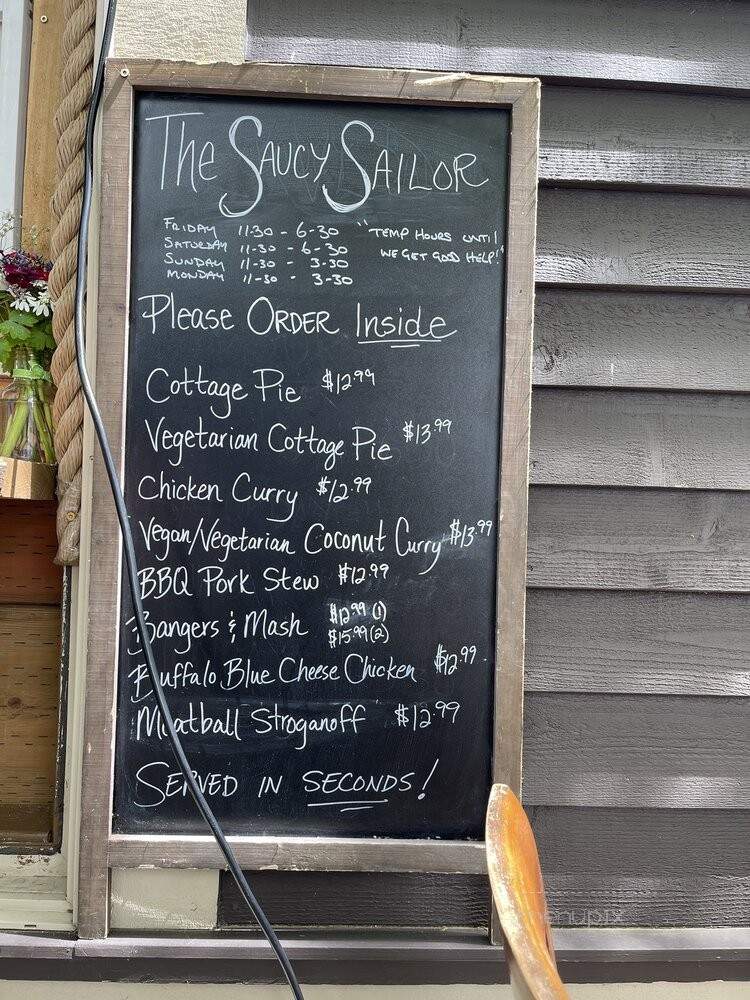 The SAUCY SAILOR
FRIDAY 11-30 - 6-30 "TEMP HOURS UNTIL
SATURDAY 11-30 - 6-30 WE GET GOOD HELP!"
SUNDAY 11-30 - 3-30
MONDAY 11-30 - 3-30
Please ORDER Inside
Cottage Pie $12.99
Vegetarian Cottage Pie $13.99
Chicken Curry $12.99
Vegan/Vegetarian Coconut Curry $13.99
BBQ Pork Stew $12.99
Bangers & Mash $12.99 (1)
$15.99 (2)
Buffalo Blue Cheese Chicken $12.99
Meatball Stroganoff $12.99
SERVED IN SECONDS!
menupix